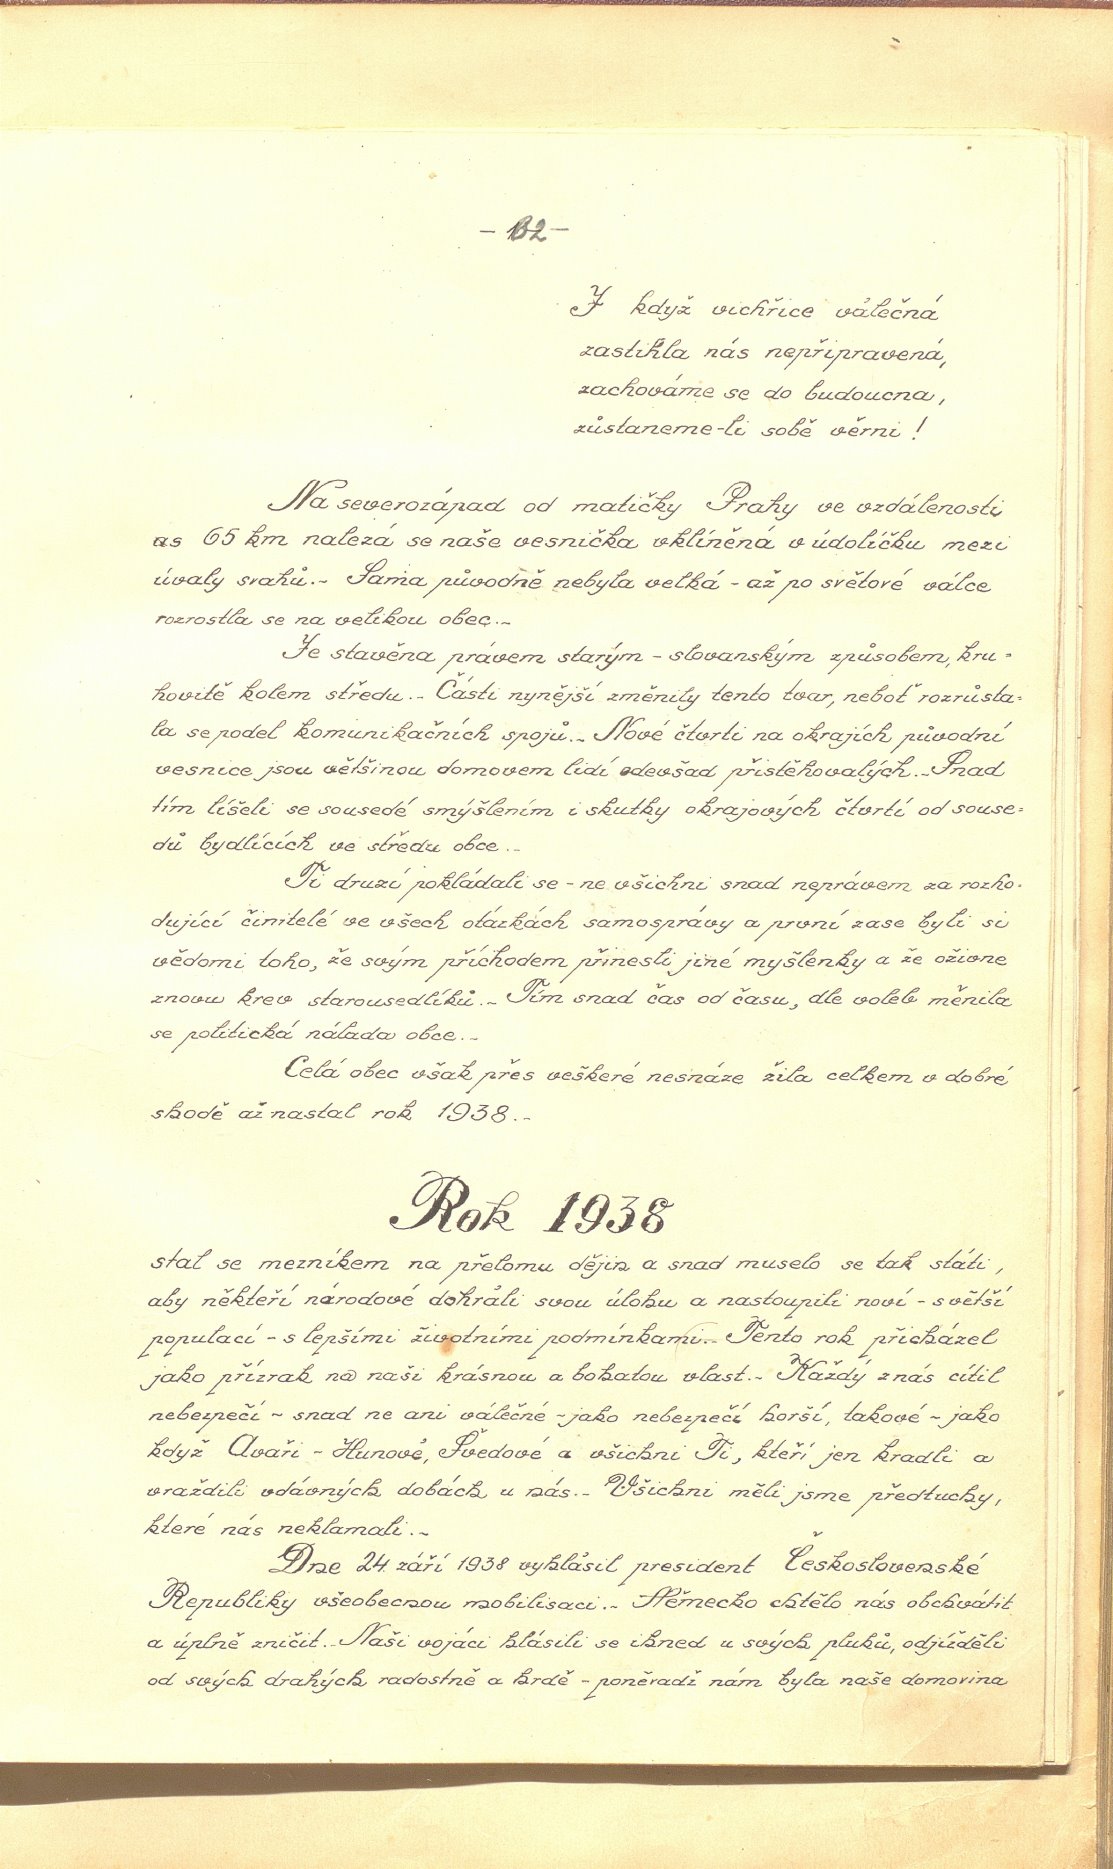 - 132 -
I když vichřice válečná
zastihla nás nepřipravená,
zachováme se do budoucna,
zůstaneme-li sobě věrni !
Na severozápad od matičky Prahy ve vzdálenosti
as 65 km nalezá se naše vesnička vklíněná v údolíčku mezi
úvaly svahů.- Sama původně nebyla velká - až po světové válce
rozrostla se na velikou obec.-
Je stavěna právem starým - slovanským způsobem, kru-
hovitě kolem středu.- Části nynější změnily tento tvar, neboť rozrůsta-
la se podel komunikačních spojů.- Nové čtvrti na okrajích původní
vesnice jsou většinou domovem lidí odevšad přistěhovalých.- Snad
tím líšeli se sousedé smýšlením i skutky okrajových čtvrtí od souse-
dů bydlících ve středu obce.-
Ti druzí pokládali se - ne všichni snad neprávem za rozho-
dující činitelé ve všech otázkách samosprávy a první zase byli si
vědomi toho, že svým příchodem přinesli jiné myšlenky a že oživne
znovu krev starousedlíků.- Tím snad čas od času, dle voleb měnila
se politická nálada obce.-
Celá obec však přes veškeré nesnáze žila celkem v dobré
shodě až nastal rok 1938.-
Rok 1938
stal se mezníkem na přelomu dějin a snad muselo se tak státi,
aby někteří národové dohráli svou úlohu a nastoupili noví - s větší
populací - s lepšími životními podmínkami.- Tento rok přicházel
jako přízrak na naši krásnou a bohatou vlast.- Každý z nás cítil
nebezpečí - snad ne ani válečné - jako nebezpečí horší, takové - jako
když Avaři - Hunové, Švedové a všichni Ti, kteří jen kradli a
vraždili vdávných dobách u nás.- Všichni měli jsme předtuchy,
které nás neklamali.-
Dne 24. září 1938 vyhlásil president Československé
Republiky všeobecnou mobilisaci.- Německo chtělo nás obchvátit
a úplně zničit.- Naši vojáci hlásili se ihned u svých pluků, odjížděli
od svých drahých radostně a hrdě - poněvadž nám byla naše domovina